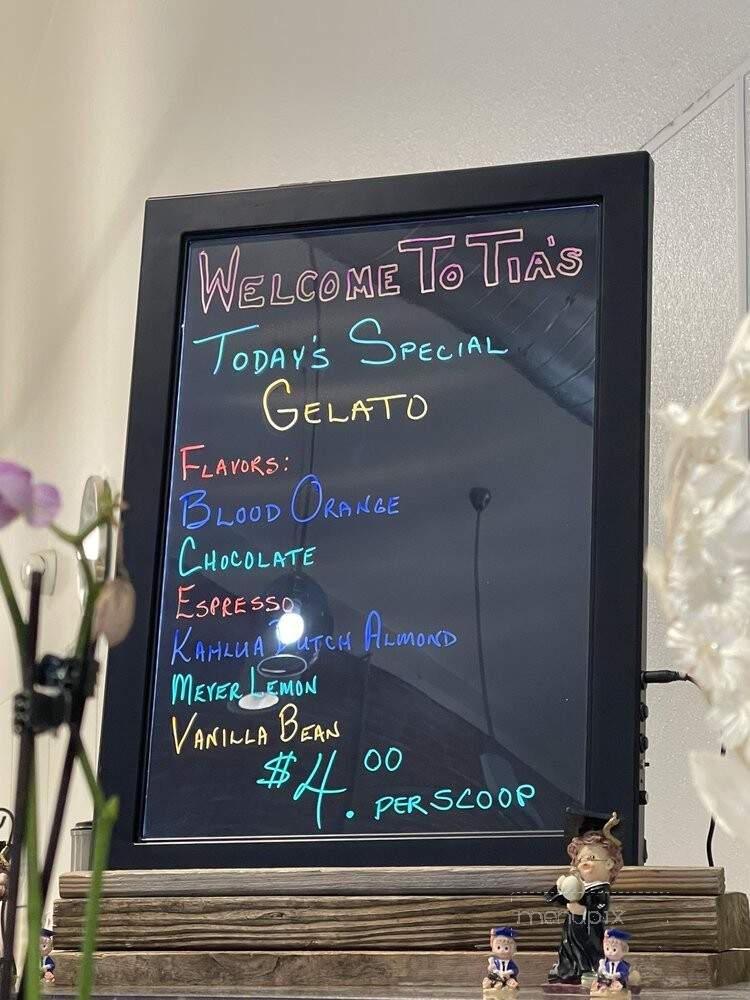 WELCOME TO TIA'S
TODAY'S SPECIAL
GELATO
FLAVORS:
BLOOD ORANGE
CHOCOLATE
ESPRESSO
KAHLUA DUTCH ALMOND
MEYER LEMON
VANILLA BEAN
$4.00 PER SCOOP
menupix